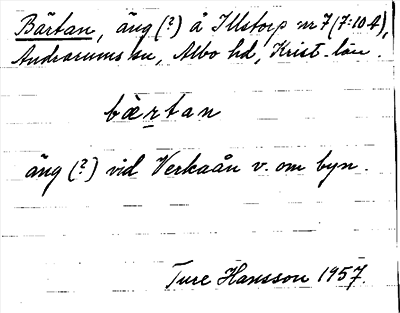 Bärtan, äng (?) å Illstorp nr 7 (7:104),
Andrarums sn, Albo hd, Krist. län.
bærtan
äng (?) vid Verkaån v. om byn.
Ture Hansson 1957.